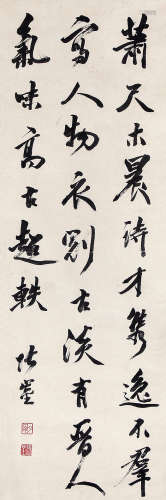 蕭尺木晨詩才雋逸不羣
寫人物衣劃古淡有晉人
氣味高古超軼